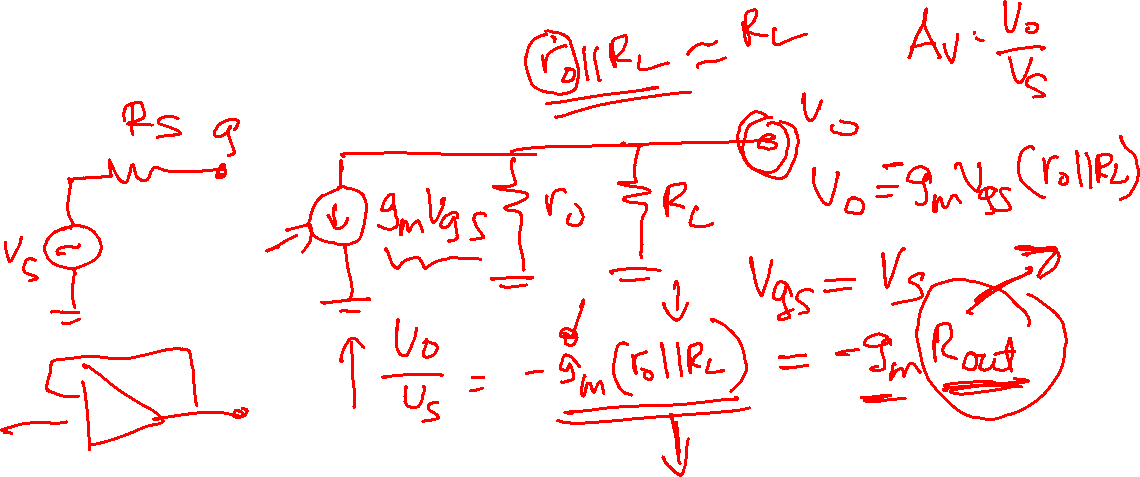 r₀||R_L ≃ R_L
A_V = V₀/V_S
R_S g
V₀
V_S
g_m V_gs
r₀
R_L
V₀ = -g_m V_gs (r₀||R_L)
V_gs = V_S
V₀/V_S = -g_m (r₀||R_L) = -g_m R_out